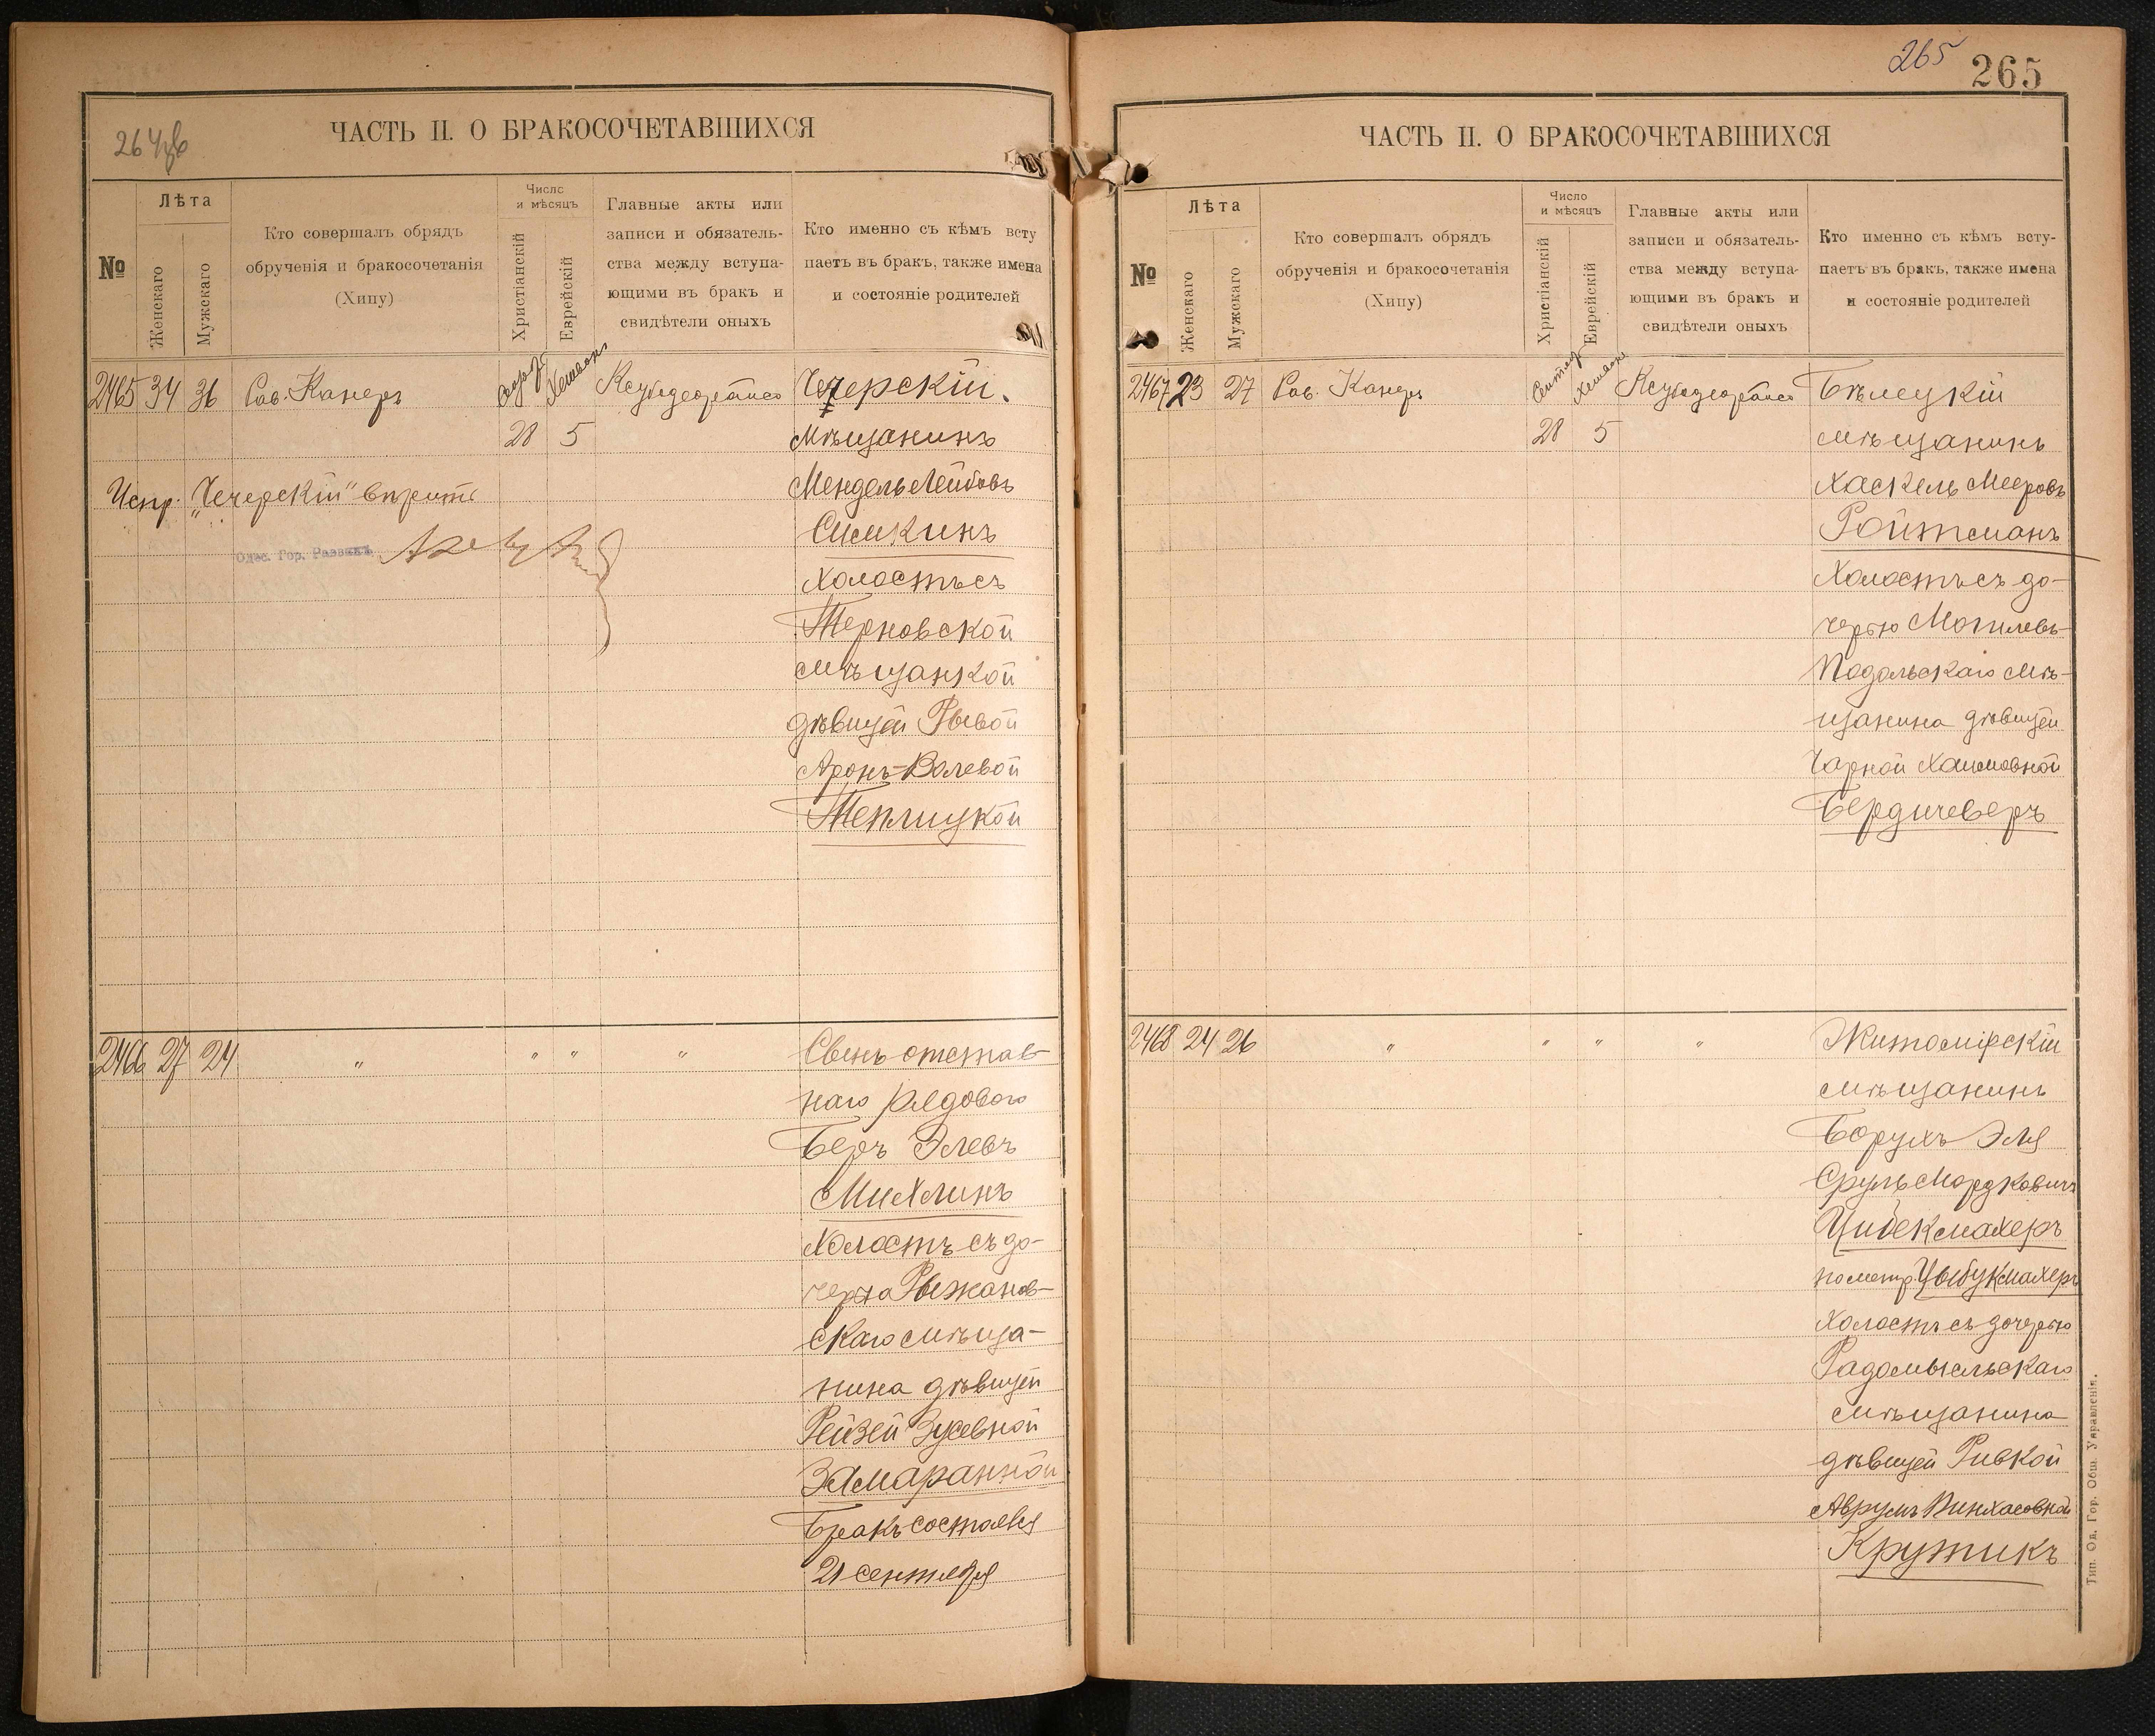 264 об
ЧАСТЬ II. О БРАКОСОЧЕТАВШИХСЯ
№
Лѣта
Женскаго
Мужскаго
Кто совершалъ обрядъ
обрученія и бракосочетанія
(Хипу)
Число
и мѣсяцъ
Христіанскій
Еврейскій
Главные акты или
записи и обязатель-
ства между вступа-
ющими въ бракъ и
свидѣтели оныхъ
Кто именно съ кѣмъ всту
паетъ въ бракъ, также имена
и состояніе родителей
2465 34 36 Рав. Канеръ Хешвонъ Чечерскій
28 5 мѣщанинъ
Испр. „Чечерскій" вѣрить
Одес. Гор. Раввинъ
Мендель Лейбовъ
Симкинъ
Холостъ съ
Терновской
мѣщанкой
дѣвицей Рывой
Аронъ-Волевой
Теплицкой
2466 27 24 " " " " Сынъ отстав-
наго рядового
Беръ Элевъ
Михлинъ
Холостъ съ до-
черью Рыжанов-
скаго мѣща-
нина дѣвицей
Рейзей Зусевной
Замаранной
Бракъ состоялся
21 сентября
265
265
ЧАСТЬ II. О БРАКОСОЧЕТАВШИХСЯ
№
Лѣта
Женскаго
Мужскаго
Кто совершалъ обрядъ
обрученія и бракосочетанія
(Хипу)
Число
и мѣсяцъ
Христіанскій
Еврейскій
Главные акты или
записи и обязатель-
ства между вступа-
ющими въ бракъ и
свидѣтели оныхъ
Кто именно съ кѣмъ всту-
паетъ въ бракъ, также имена
и состояніе родителей
2467 23 27 Рав. Канеръ Сентяб. Хешвонъ Бѣлецкій
28 5 мѣщанинъ
Хаскель Мееровъ
Ройтманъ
Холостъ съ до-
черью Могилевъ-
Подольскаго мѣ-
щанина дѣвицей
Чарной Хаимовной
Бердичеверъ
2468 24 26 " " " " Житомірскій
мѣщанинъ
Борухъ Эля
Сруль Мордковичъ
Цибекмахеръ
по метр. Цыбукмахеръ
Холостъ съ дочерью
Радомысльскаго
мѣщанина
дѣвицей Ривкой
Аврумъ Пинхасовной
Крутикъ
Тип. Од. Гор. Общ. Управленія.